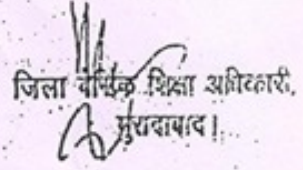 जिला बेसिक शिक्षा अधिकारी,
मुरादाबाद।